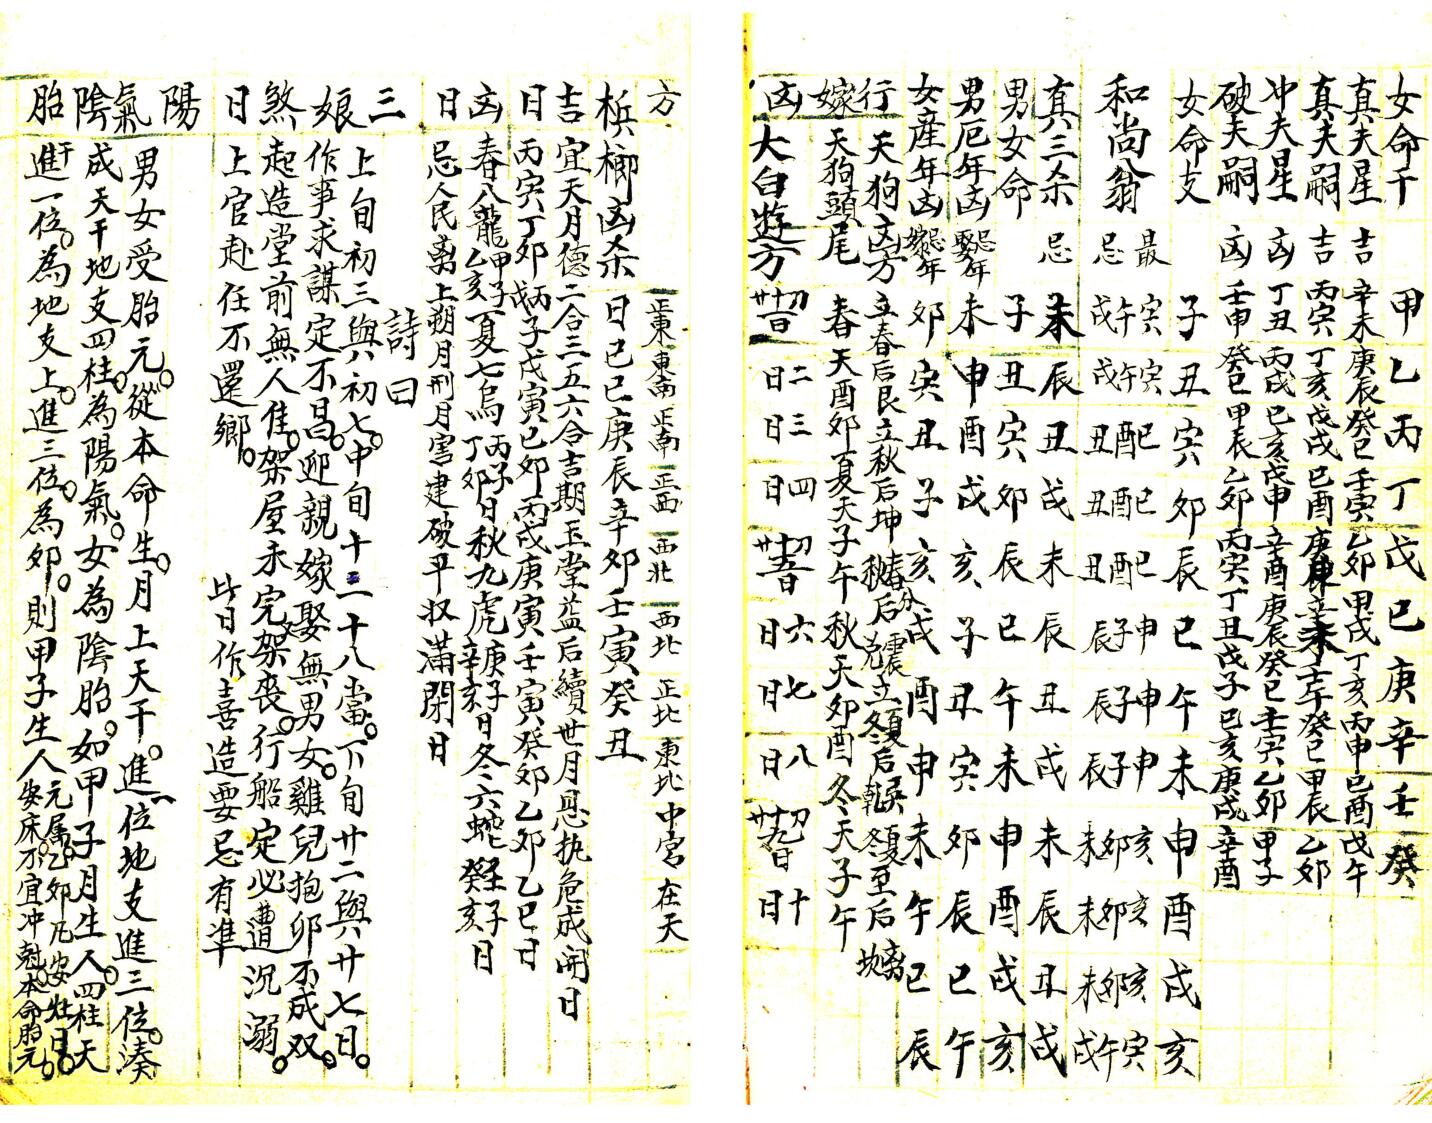 女命干 甲乙丙丁戊己庚辛壬癸
真夫星 吉 辛未 庚辰 癸巳 壬寅 乙卯 甲戌 丁亥 丙申 己酉 戊午
真夫嗣 吉 丙寅 丁亥 戊戌 己酉 庚申 辛未 壬午 癸巳 甲辰 乙卯
冲夫星 凶 丁丑 丙戌 己亥 戊申 辛酉 庚辰 癸巳 壬寅 乙卯 甲子
破夫嗣 凶 壬申 癸巳 甲辰 乙卯 丙寅 丁丑 戊子 己亥 庚戌 辛酉
女命支 子丑寅卯辰巳午未申酉戌亥
和尚翁 最忌 寅午戌 寅午戌 巳酉丑 巳酉丑 巳酉丑 申子辰 申子辰 申子辰 亥卯未 亥卯未 亥卯未 寅午戌
真三杀 忌 未辰丑戌未辰丑戌未辰丑戌
男女命 子丑寅卯辰巳午未申酉戌亥
男厄年凶 忌娶年 未申酉戌亥子丑寅卯辰巳午
女產年凶 忌嫁年 卯寅丑子亥戌酉申未午巳辰
行 天狗凶方 立春后艮 立秋后坤 春分后震 秋后兌 立夏后巽 立冬后乾 夏至后離 冬至后坎
嫁 天狗頭尾 春天酉卯 夏天子午 秋天卯酉 冬天子午
凶 大白遊方 初一十一廿一日 二日 三日 四日 初五十五廿五日 六日 七日 八日 初九十九廿九日 十日
方 正東 東南 正南 正西 西北 西北 正北 東北 中宮 在天
梹榔凶杀 日 己巳 庚辰 辛卯 壬寅 癸丑
吉 宜天月德二合三五六合吉期玉堂益后續世月恩执危成開日
日 丙寅丁卯丙子戊寅己卯丙戌庚寅壬寅癸卯乙卯乙巳日
凶 春八龍甲子乙亥夏七鳥丙子丁卯日秋九虎庚子辛亥日冬六蛇壬子癸亥日
日 忌人民离上朔月刑月害建破平収满閉日
詩曰
三 上旬初三與初七。中旬十三十八當。下旬廿二與廿七日。
娘 作事求謀定不昌。迎親嫁娶無男女。雞兒抱卵不成双。
煞 起造堂前無人住。架屋未完架丧。行船定必遭沉溺。
日 上官赴任不還鄉。 此日作喜造要忌有準
陽 男女受胎元。從本命生。月上天干。進一位地支進三位。湊
氣 成天干地支四柱。為陽氣。女為陰胎。如甲子月生人。四柱天
陰 干進一位。為地支上。進三位。為卯。則甲子生人元属乙卯凡安牀日。
胎 安床不宜冲尅本命胎元。